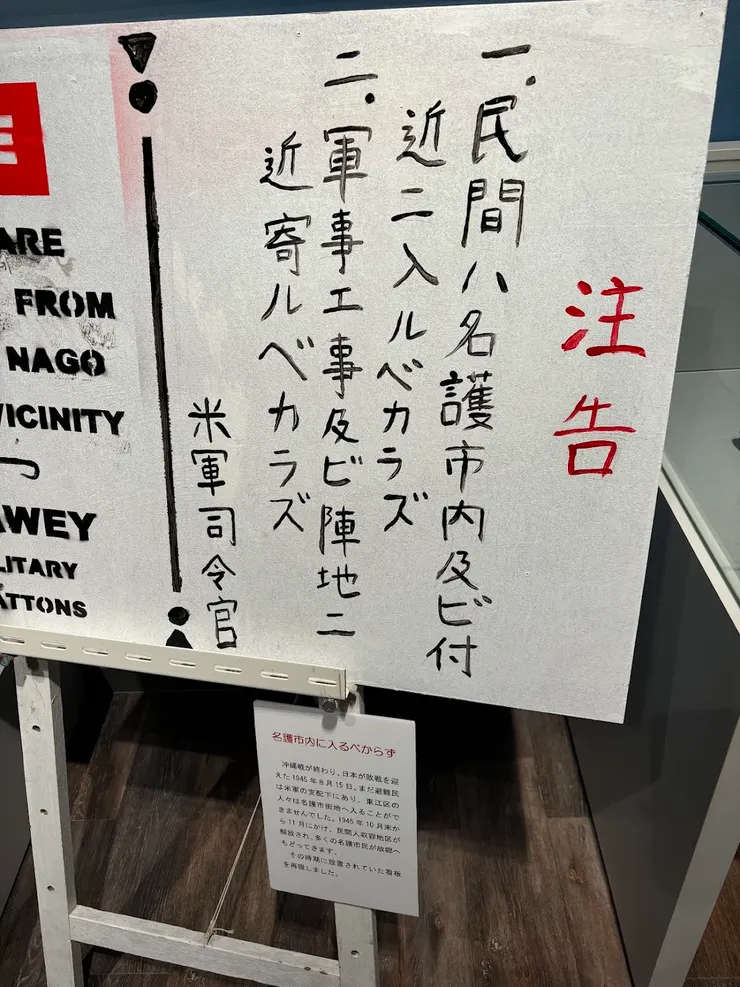 注告
一.民間ハ名護市内及ビ付
近ニ入ルベカラズ
二.軍事工事及ビ陣地ニ
近寄ルベカラズ
米軍司令官
E
ARE
FROM
NAGO
ICINITY
AWEY
LITARY
ATTONS
名護市内に入るべからず
沖縄戦が終わり、日本が敗戦を迎
えた1945年8月15日、まだ避難民
は米軍の支配下にあり、東江区の
人々は名護市街地へ入ることがで
きませんでした。1945年10月末か
ら11月にかけ、民間人収容地区が
解放され、多くの名護市民が故郷へ
もどってきます。
その時期に設置されていた看板
を再現しました。